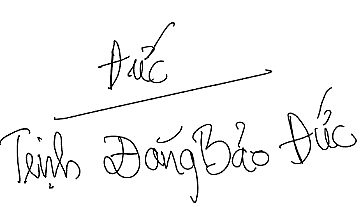 Đức
Trịnh Đăng Bảo Đức